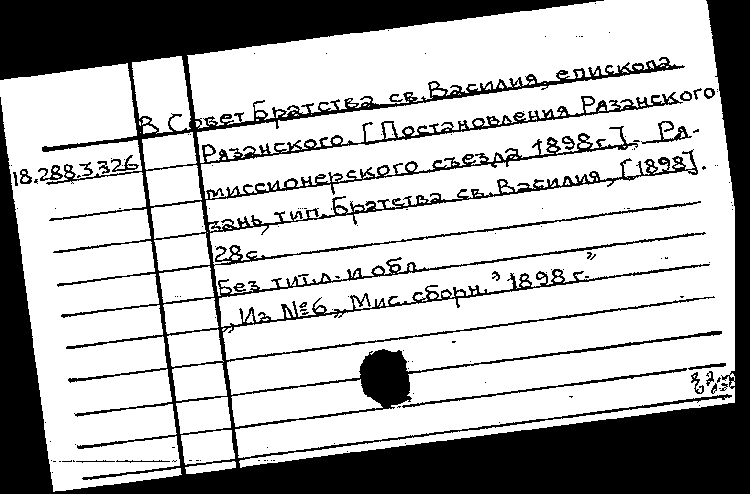 В Совет Братства св. Василия, епископа
Рязанского. [Постановления Рязанского
18.288.3.326
миссионерского съезда 1898 г.]. Ря-
зань, тип. Братства св. Василия, [1898].
28 с.
Без тит. л. и обл.
„Из № 6 „Мис. сборн.” 1898 г.”